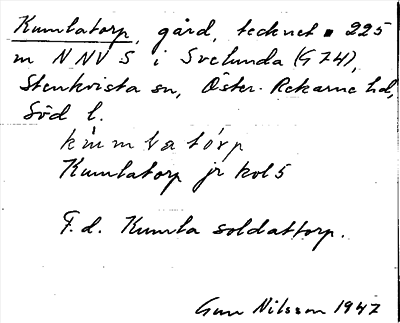 Kumlatorp, gård, tecknet ▪ 225
m NNV S i Svelunda (G 74),
Stenkvista sn, Öster-Rekarne hd,
Söd l.
kùmmlatórp
Kumlatorp jr kol 5
F. d. Kumla soldattorp.
Gun Nilsson 1947